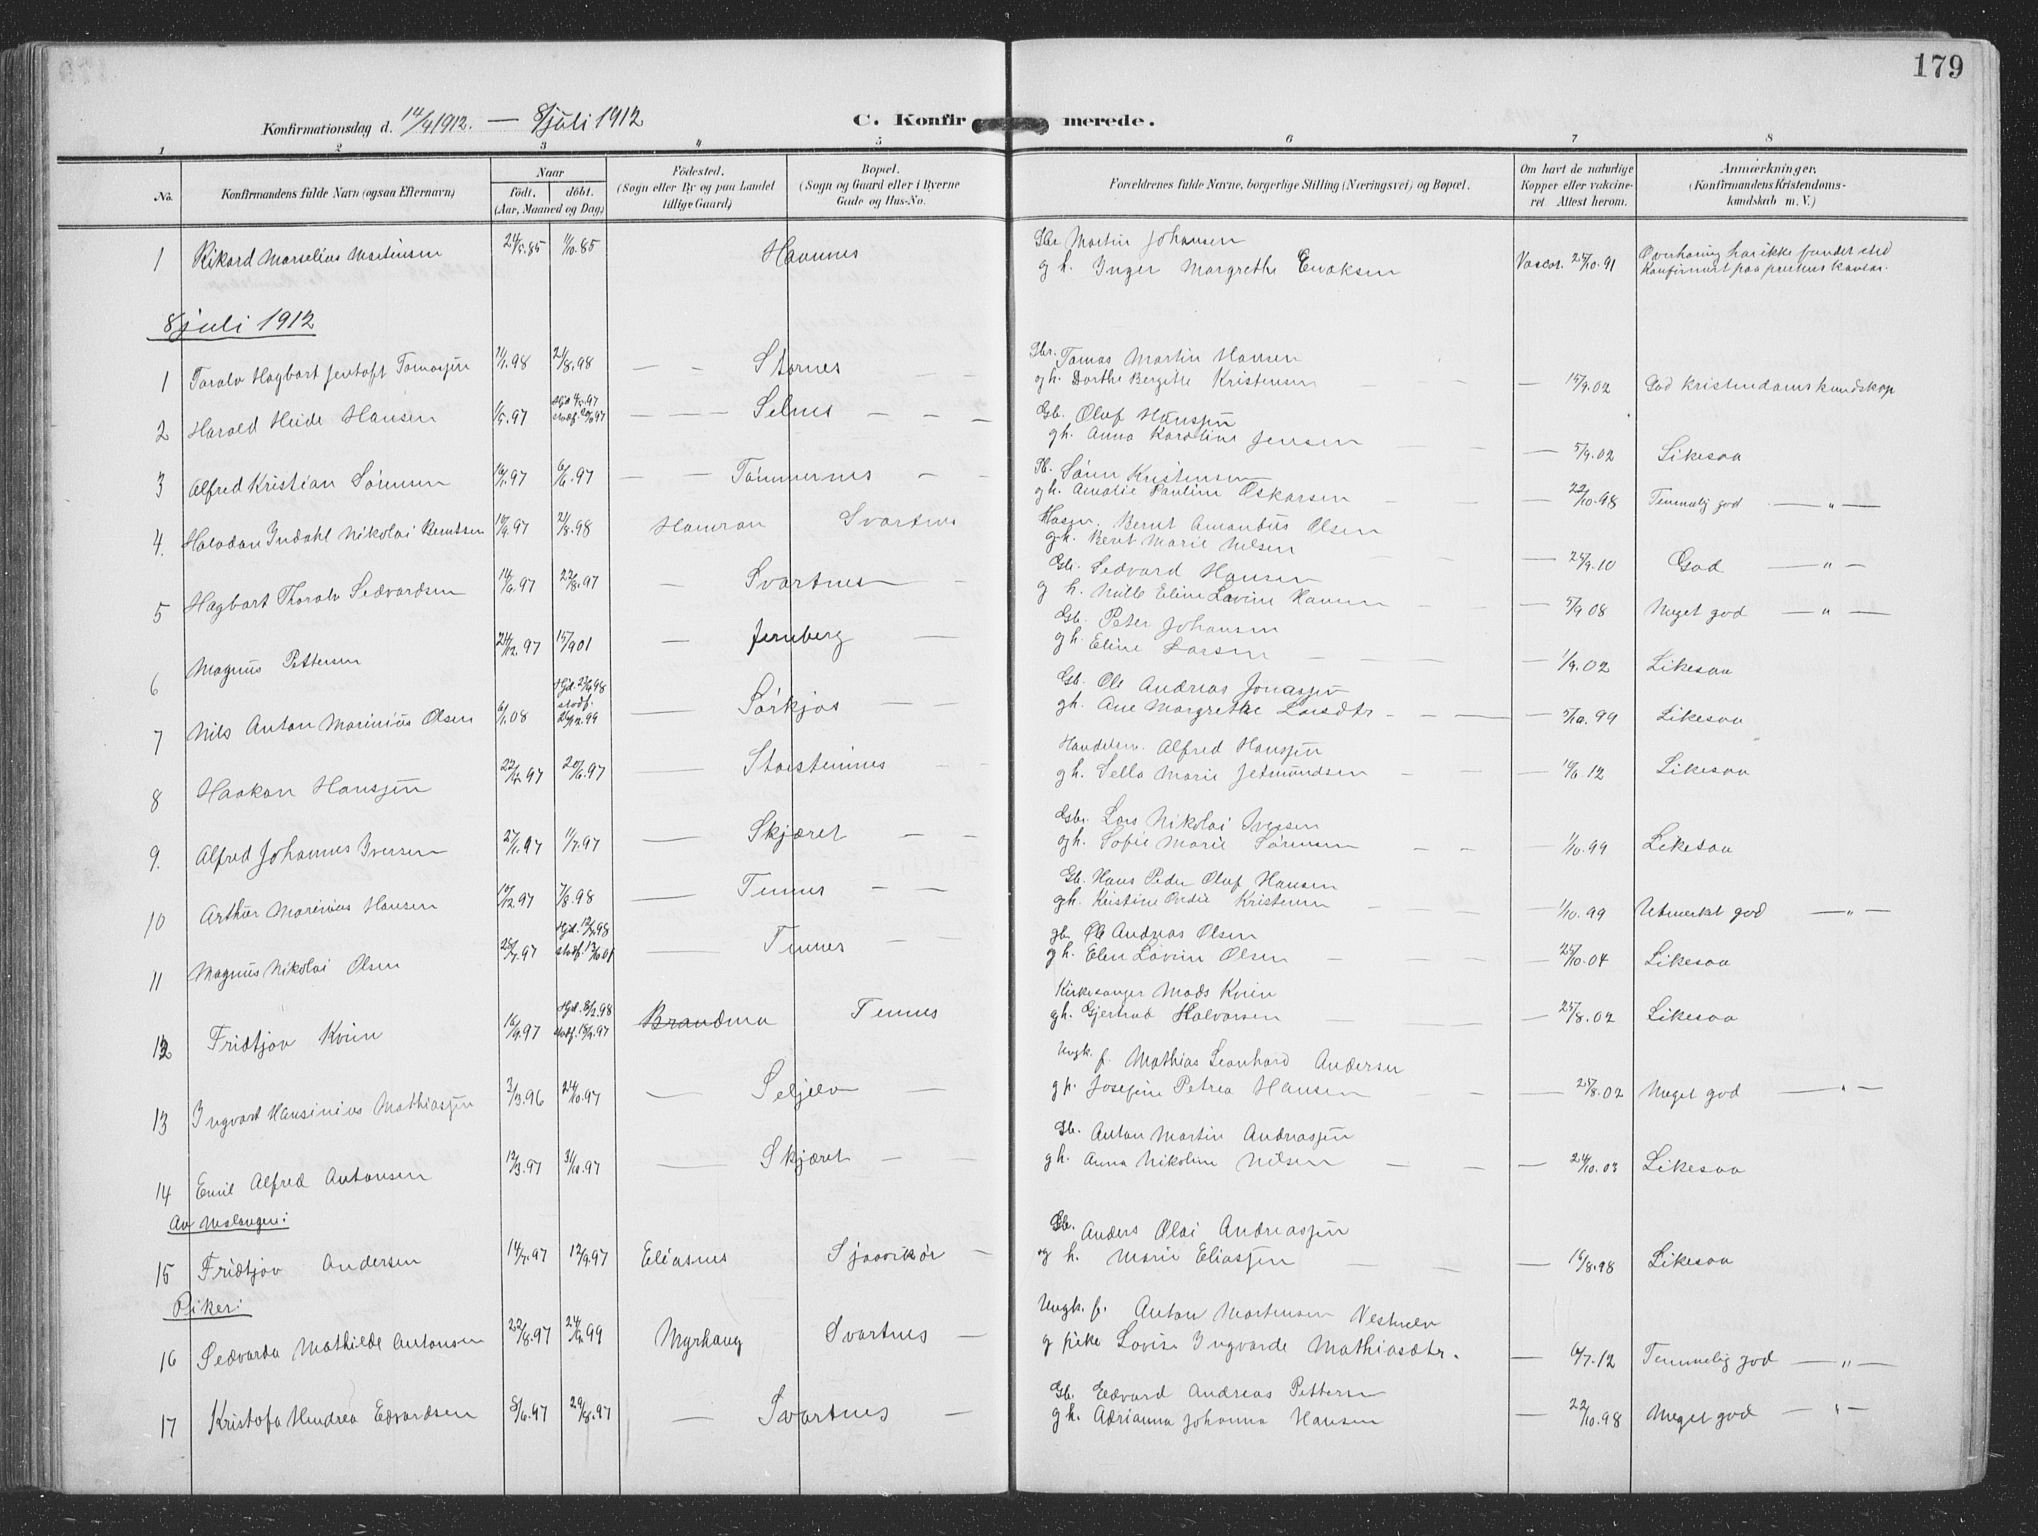 179
Konfirmationsdag d. 14/4 1912. — 8/juli 1912
C. Konfirmerede.
1 2 3 4 5 6 7 8
No.
Konfirmandens fulde Navn (ogsaa Efternavn)
Naar
födt. döbt.
(Aar, Maaned og Dag)
Födested.
(Sogn eller By og paa Landet
tillige Gaard)
Bopæl.
(Sogn og Gaard eller i Byerne
Gade og Hus-No.
Forældrenes fulde Navne, borgerlige Stilling (Næringsvei) og Bopæl.
Om havt de naturlige
Kopper eller vakcine-
ret. Attest herom.
Anmærkninger.
(Konfirmandens Kristendoms-
kundskab m. V.)
1 Rikard Marselius Martinsen .85 .85 Havnnes Martin Johansen
og h. Inger Margrethe Enoksen Vaccr. 25/10.91 Overhøring har ikke fundet sted
Konfirmert paa prestens kontor.
8 juli 1912
1 Toralv Hagbart Jentoft Tomasjen .98 21/8.98 — — Stornes Gbr. Tomas Martin Hansen
og h. Dorthe Bergitte Kristensen — 15/9.02 God kristendomskundskap
2 Harald Heide Hansen 1/5.97 — — — Selnes — — — Gb. Olaf Hansjen
g h. Anna Karoline Jensen — 5/9.02 Likesaa
3 Alfred Kristian Sørensen .97 6/6.97 — — Tømmernes — — Søren Kristensen
g h. Amalie Pauline Oskarsen — 22/10.98 Temmelig god — " —
4. Halvdan Indahl Nikolai Berntsen .97 21/8.98 Hamran Svartnes Bernt Amandus Olsen
g h. Berit Marie Nilsen — 25/9.10 God — " —
5 Hagbart Thoralv Sedvardsen 14/6.97 22/8.97 — Svartnes — Gb. Sedvard Hansen
g h. Eline Lovise Hansen — 5/9 08 Meget god — " —
6 Magnus Pettersen 24/12.97 15/9 01 — Jernberg — Gb. Peter Johansen
g h. Eline Larsen — 1/9.02 Likesaa
7 Nils Anton Marinius Olsen 6/1.08 — Sørkjos — — Gb. Ole Andreas Jonasjen
g h. Ane Margrethe Larsdtr — 5/10.99 Likesaa
8 Haakon Hansjen .97 .97 — Storsteinnes — — Alfred Hansjen
g h. Sella Marie Jetmundsen — .12 Likesaa
9. Alfred Johannes Iversen .97 11/7.97 — Skjæret — — Gbr. Lars Nikolai Iversen
g h. Sofie Marie Sørensen — 1/10.99 Likesaa
10 Arthur Marinius Hansen 17/12.97 7/8.98 — Tennes — — Gb. Hans Peder Olaf Hansen
g h. Kristine Kristensen — 1/10.99 Utmerket god — " —
11 Magnus Nikolai Olsen .97 — Tennes — — gb. Ole Andreas Olsen
g h. Elen Lovise Olsen — 25/10.04 Likesaa
12 Fridtjov Kvien .97 Brandmo Tennes Kirkesanger Mads Kvien
g h. Gjertrud Halvorsen — 25/8.02 Likesaa
13 Ingvart Hansinius Mathiasjen 3/3.96 24/10.97 — Seljelv — Ungk. f. Mathias Leonhard Andersen
g p. Josefine Petrea Hansen — 25/8.02 Meget god — " —
14 Emil Alfred Antonsen 12/3.97 31/10.97 — Skjæret — — Gb. Anton Martin Andreasjen
g h. Anna Nikoline Nilsen — 24/10.03 Likesaa
Av Malangen:
15 Fridtjov Andersen 14/7.97 12/9.97 Eliasnes Sjaavikør — Gb. Anders Olai Andreasjen
og h. Marie Eliasjen — 16/8.98 Likesaa
Piker:
16 Sedvarda Mathilde Antonsen 22/8.97 .99 Myrhaug Svartnes — Ungk. f. Anton Mortensen
g pike Lovise Ingvarde Mathiasdtr. — 6/7.12 Temmelig god — " —
17 Kristofa Hendrea Edvardsen 8/6.97 29/8.97 — Svartnes — Gb. Edvard Andreas Pettersen
g h. Adrianna Johanna Hansen — 22/10.98 Meget god — " —